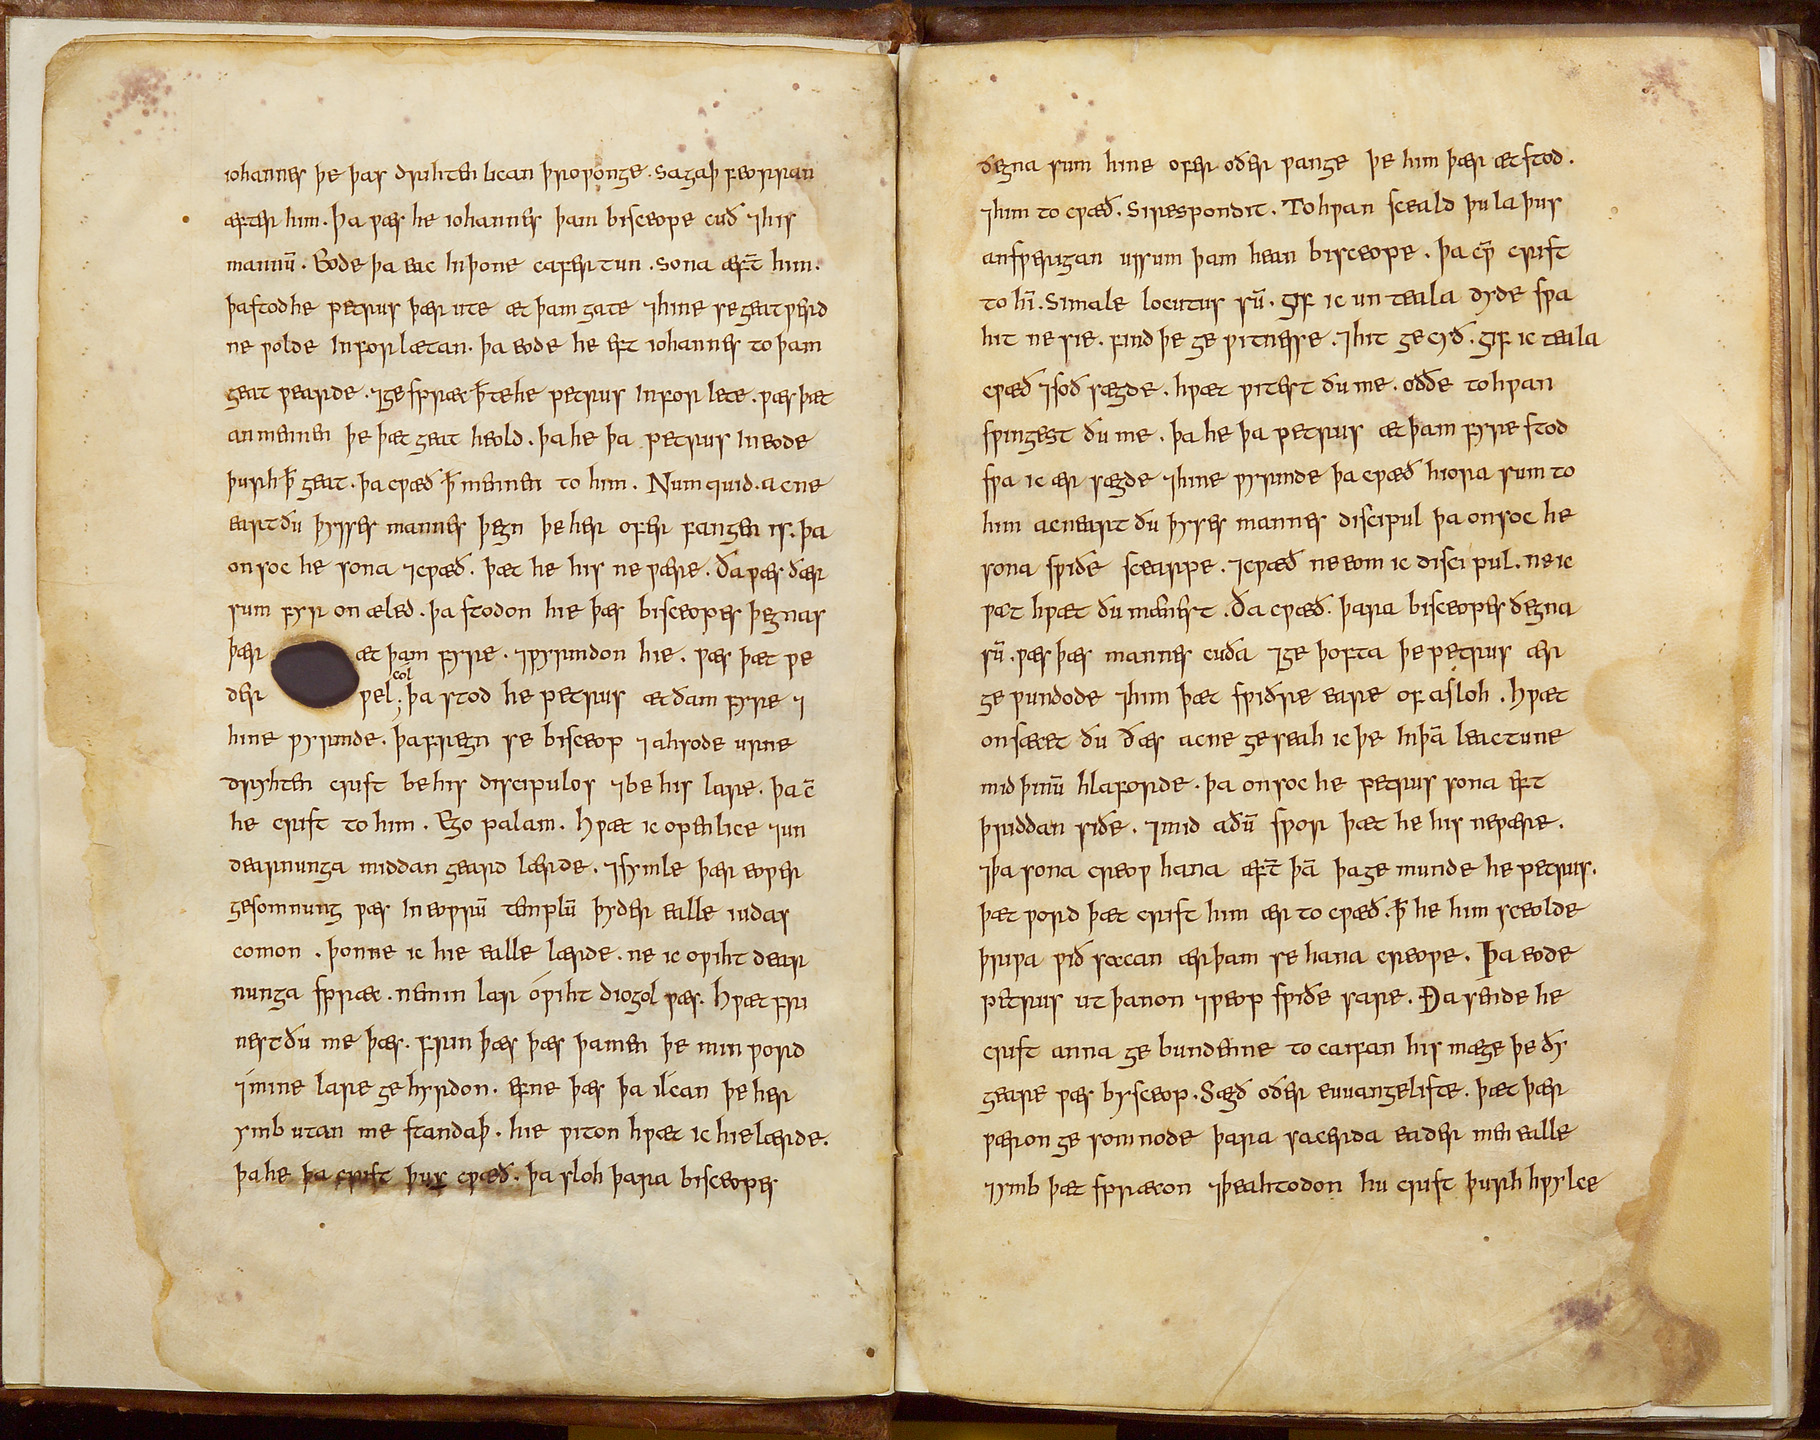 iohannes þe þas drihtenlican þroƿonge. sagaþ feorran
æfter him. þa ƿæs he iohannes þam bisceope cuð ⁊ his
mannū. Eode þa eac in þone cafertun. sona æft̄ him.
þa stod he petrus þær ute æt þam gate ⁊ hine se geatƿerd
ne ƿolde in forlætan. þa eode he eft iohannes to þam
geat ƿearde. ⁊ gespræc ꝥte he petrus in forlete. ƿæs þæt
an mennen þe þæt geat heold. þa he þa petrus in eode
þurh ꝥ geat. þa cƿæð ꝥ mennen to him. Numquid. ac ne
eart ðu þysses mannes þegn þe her ofer fangen is. þa
onsoc he sona ⁊ cƿæð. þæt he his ne ƿære. ða ƿæs ðær
sum fyr onæled. þa stodon hie þæs bisceopes þegnas
þær æt þam fyre. ⁊ ƿyrmdon hie. ƿæs þæt ƿe
der ƿel col; þa stod he petrus æt ðam fyre ⁊
hine ƿyrmde. þa frægn se bisceop ⁊ ahsode urne
dryhten crist be his discipulos ⁊ be his lare. þa c̄
he crist to him. Ego palam. Hƿæt ic openlice ⁊ un
dearnunga middangeard lærde. ⁊ symle þær eoƿer
gesomnung ƿæs in eoƿrū templū þyder ealle iudas
comon. þonne ic hie ealle lærde. ne ic oƿiht dear
nunga spræc. ne min lar oƿiht diogol ƿæs. Hƿæt fri
nest ðu me þæs. frin þæs þæs þa men þe min ƿord
⁊ mine lare gehyrdon. efne þæs þa ilcan þe her
ymb utan me standaþ. hie ƿiton hƿæt ic hie lærde.
þa he þa crist þus cƿæð. þa sloh þara bisceopes
ðegna sum hine ofer oðer ƿange þe him þær æt stod.
⁊ him to cƿæð. Si respondit. To hƿan sceald þu la þus
andsƿerigan ussum þam hean bisceope. þa cƿ̄ crist
to hī. Si male locutus sū. gif ic un teala dyde sƿa
hit ne sie. sind þe geƿitnesse. ⁊ hit gecyð. gif ic teala
cƿæð ⁊ soð sægde. hƿæt ƿitest ðu me. oððe to hƿan
sƿingest ðu me. þa he þa petrus æt þam fyre stod
sƿa ic ær sægde ⁊ hine ƿyrmde þa cƿæð hiora sum to
him ac neart ðu þyses mannes discipul þa onsoc he
sona sƿiðe scearpe. ⁊ cƿæð ne eom ic discipul. ne ic
ƿat hƿæt ðu mænest. Ða cƿæð. þara bisceopes ðegna
sū. ƿæs þæs mannes cuða ⁊ geþofta þe petrus ær
geƿundode ⁊ him þæt sƿiðre eare of asloh. Hƿæt
onsæcet ðu ðæs ac ne geseah ic þe in þā leactune
mid þinū hlaforde. þa onsoc he petrus sona eft
þriddan siðe. ⁊ mid aðū sƿor þæt he his ne ƿære.
⁊ þa sona creoƿ hana æft̄ þā þa gemunde he petrus.
þæt ƿord þæt crist him ær to cƿæð. ꝥ he him sceolde
þriƿa ƿið sacan ær þam se hana creoƿe. Þa eode
petrus ut þanon ⁊ ƿeop sƿiðe sare. Ða sende he
crist anna gebundenne to caifan his mæge þe ðy
geare ƿæs bysceop. Sægð oðer euuangeliste. þæt þær
ƿæron gesomnode þara sacerda ealdermen ealle
⁊ ymb þæt spræcon ⁊ þeahtodon hu crist þurh hƿylce